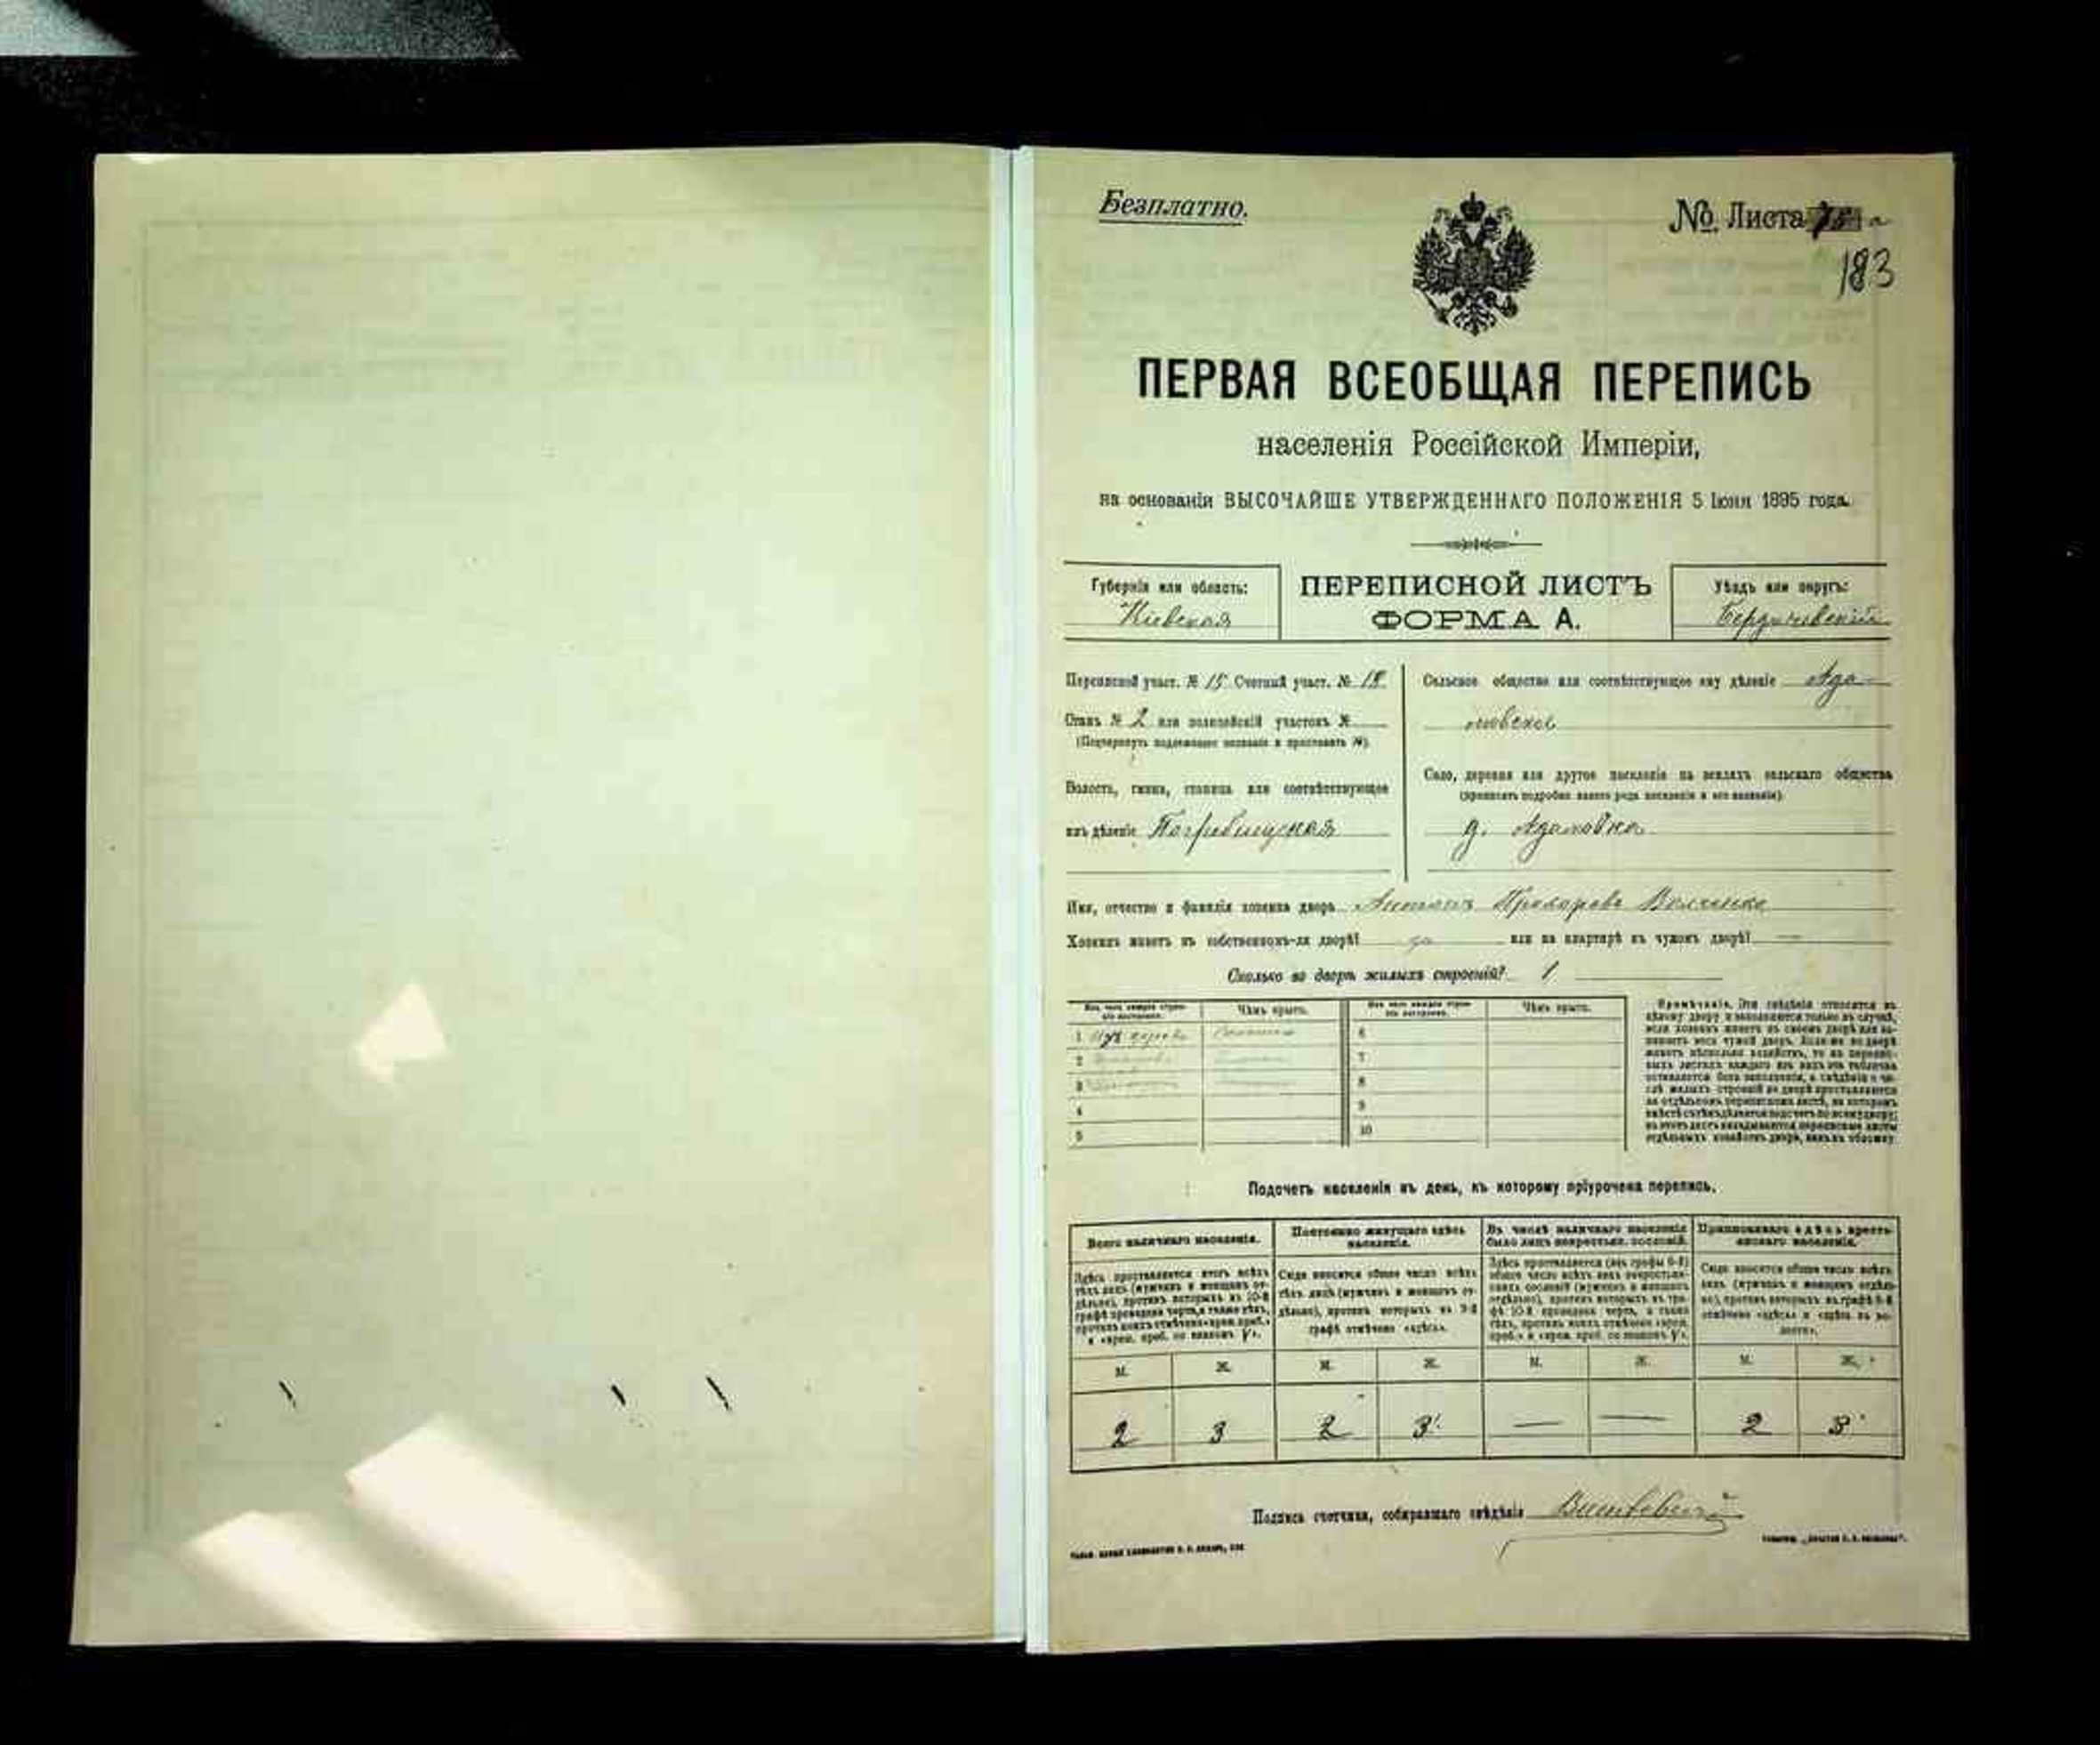 Безплатно.
№ Листа
183
ПЕРВАЯ ВСЕОБЩАЯ ПЕРЕПИСЬ
населенія Россійской Имперіи,
на основаніи ВЫСОЧАЙШЕ УТВЕРЖДЕННАГО ПОЛОЖЕНІЯ 5 Іюня 1895 года.
Губернія или область:
Кіевская
ПЕРЕПИСНОЙ ЛИСТЪ
ФОРМА А.
Уѣздъ или округъ:
Бердичевскій
Переписной участ. № 15 Счетный участ. № 18
Станъ № 2 или полицейскій участокъ №
(Подчеркнуть подлежащее названіе и проставить №).
Волость, гмина, станица или соотвѣтствующее
имъ дѣленіе Погребищская
Сельское общество или соотвѣтствующее ему дѣленіе Ада-
мовское
Село, деревня или другое поселеніе на земляхъ сельскаго общества
(прописать подробно какого рода поселеніе и его названіе).
д. Адамовка
Имя, отчество и фамилія хозяина двора Прохоровъ
Хозяинъ живетъ въ собственномъ-ли дворѣ? да или на квартирѣ въ чужомъ дворѣ? —
Сколько во дворѣ жилыхъ строеній? 1
Изъ чего каждое строе-
ніе построено.
Чѣмъ крыто.
Изъ чего каждое строе-
ніе построено.
Чѣмъ крыто.
1 Изъ дерева 6
2 7
3 8
4 9
5 10
Примѣчаніе. Эти свѣдѣнія относятся къ
цѣлому двору и заполняются только въ случаѣ,
если хозяинъ живетъ въ своемъ дворѣ или за-
нимаетъ весь чужой дворъ. Если-же во дворѣ
живетъ нѣсколько хозяйствъ, то въ перепис-
ныхъ листахъ каждаго изъ нихъ эта табличка
оставляется безъ заполненія, а свѣдѣнія о чи-
слѣ жилыхъ строеній во дворѣ проставляются
на отдѣльномъ переписномъ листѣ, на которомъ
вмѣстѣ съ тѣмъ дѣлается подсчетъ по всему двору;
въ этотъ листъ вкладываются переписные листы
отдѣльныхъ хозяйствъ двора, какъ въ обложку.
Подсчетъ населенія въ день, къ которому пріурочена перепись.
Всего наличнаго населенія.
Постоянно живущаго здѣсь
населенія.
Въ числѣ наличнаго населенія
было лицъ некрестьян. сословій.
Приписаннаго здѣсь кресть-
янскаго населенія.
Здѣсь проставляется итогъ всѣхъ
тѣхъ лицъ (мужчинъ и женщинъ от-
дѣльно), противъ которыхъ въ 10-й
графѣ проведена черта, а также тѣхъ,
противъ коихъ отмѣчено «врем. преб.»
и «врем. преб. со знакомъ
Сюда вносится общее число всѣхъ
тѣхъ лицъ (мужчинъ и женщинъ от-
дѣльно), противъ которыхъ въ 9-й
графѣ отмѣчено «здѣсь».
Здѣсь проставляется (изъ графы 6-й)
общее число всѣхъ лицъ некрестьян-
скихъ сословій (мужчинъ и женщинъ
отдѣльно), противъ которыхъ въ гра-
фѣ 10-й проведена черта, а также
тѣхъ, противъ коихъ отмѣчено «врем.
преб.» и «врем. преб. со знакомъ
Сюда вносится общее число всѣхъ
лицъ (мужчинъ и женщинъ отдѣль-
но), противъ которыхъ въ графѣ 8-й
отмѣчено «здѣсь» и «здѣсь въ во-
лости».
М. Ж. М. Ж. М. Ж. М. Ж.
2 3 2 3 — — 2 3
Подпись счетчика, собиравшаго свѣдѣнія